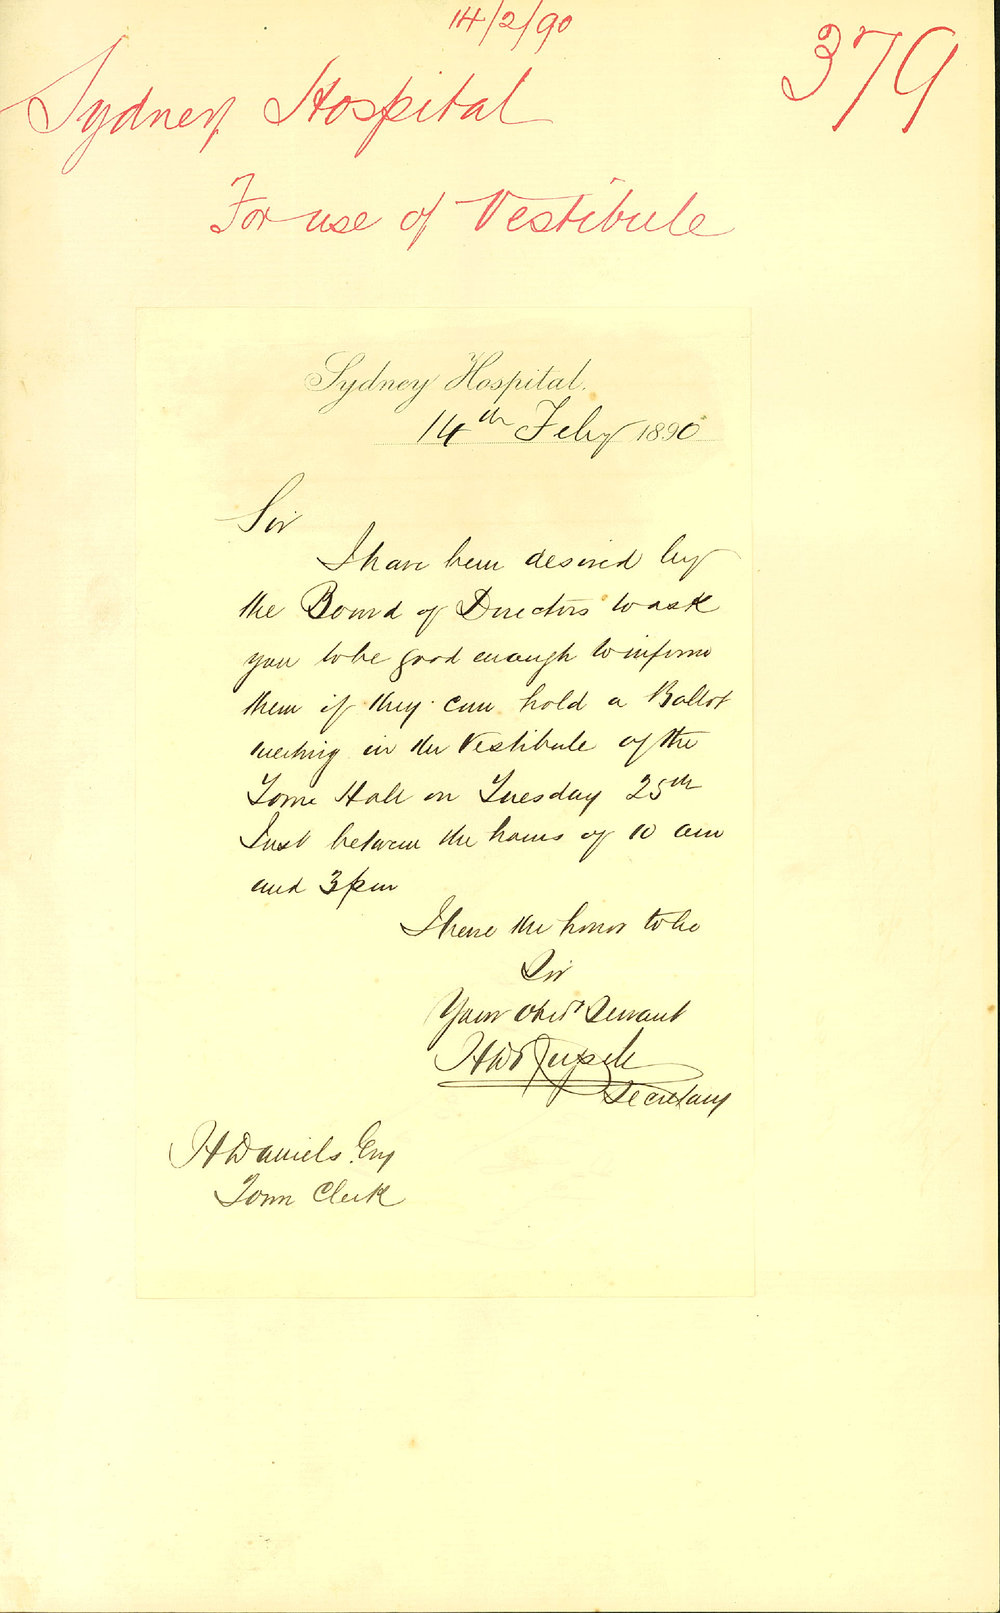 14/2/90
379
Sydney Hospital
For use of Vestibule
Sydney Hospital.
14th Feby 1890
Sir
I have been desired by
the Board of Directors to ask
you to be good enough to inform
them if they can hold a Ballot
meeting in the Vestibule of the
Town Hall on Tuesday 25th
Inst between the hours of 10 am
and 3 pm
I have the honor to be
Sir
Your Obedt Servant
Secretary
H Daniels Esq
Town Clerk